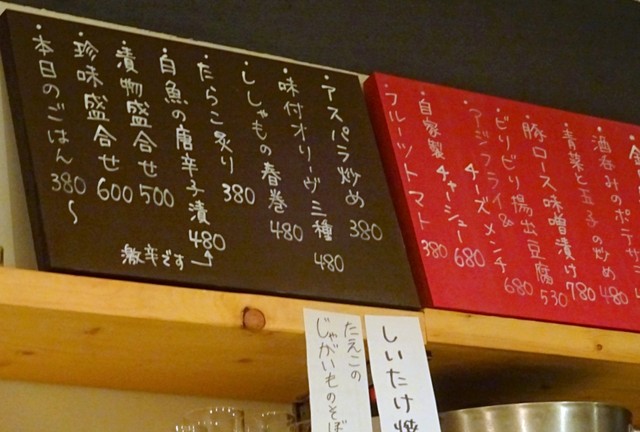 ・アスパラ炒め 380
・味付オリーヴ三種 480
・ししゃもの春巻 480
・たらこ炙り 380
・白魚の唐辛子漬 480
激辛です
・漬物盛合せ 500
・珍味盛合せ 600
・本日のごはん 380〜
・酒呑みのポテサラ
・青菜と玉子の炒め 480
・豚ロース味噌漬け 780
・ピリピリ揚出豆腐 530
・アジフライ&チーズメンチ 680
・自家製チャーシュー 680
・フルーツトマト 380
しいたけ焼
たえこの
じゃがいものそぼ